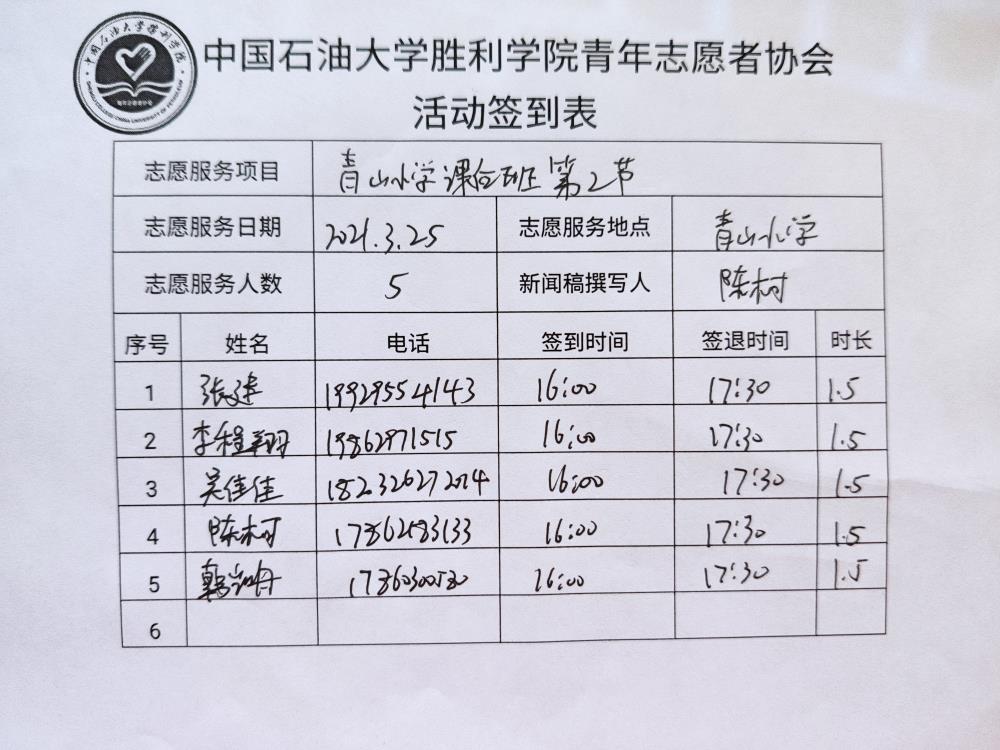 中国石油大学胜利学院
中国石油大学胜利学院青年志愿者协会
活动签到表
志愿服务项目 青山小学课后班第2节
志愿服务日期 2021.3.25 志愿服务地点 青山小学
志愿服务人数 5 新闻稿撰写人 陈树
序号 姓名 电话 签到时间 签退时间 时长
1 张建 19929554143 16:00 17:30 1.5
2 李程翔 19862971515 16:00 17:30 1.5
3 吴佳佳 18232627204 16:00 17:30 1.5
4 陈树 17862483133 16:00 17:30 1.5
5 17860300580 16:00 17:30 1.5
6